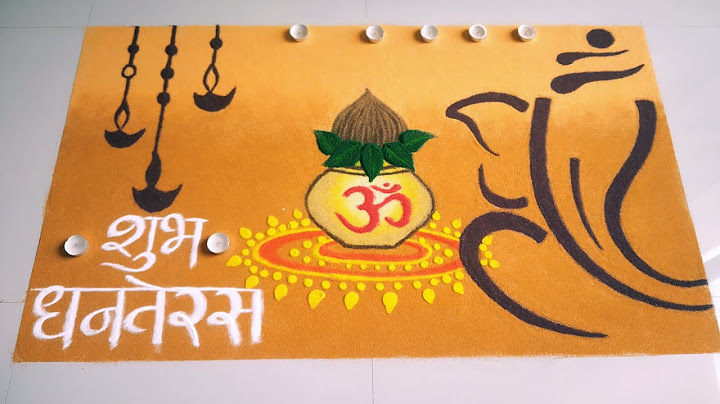 ॐ
शुभ
धनतेरस